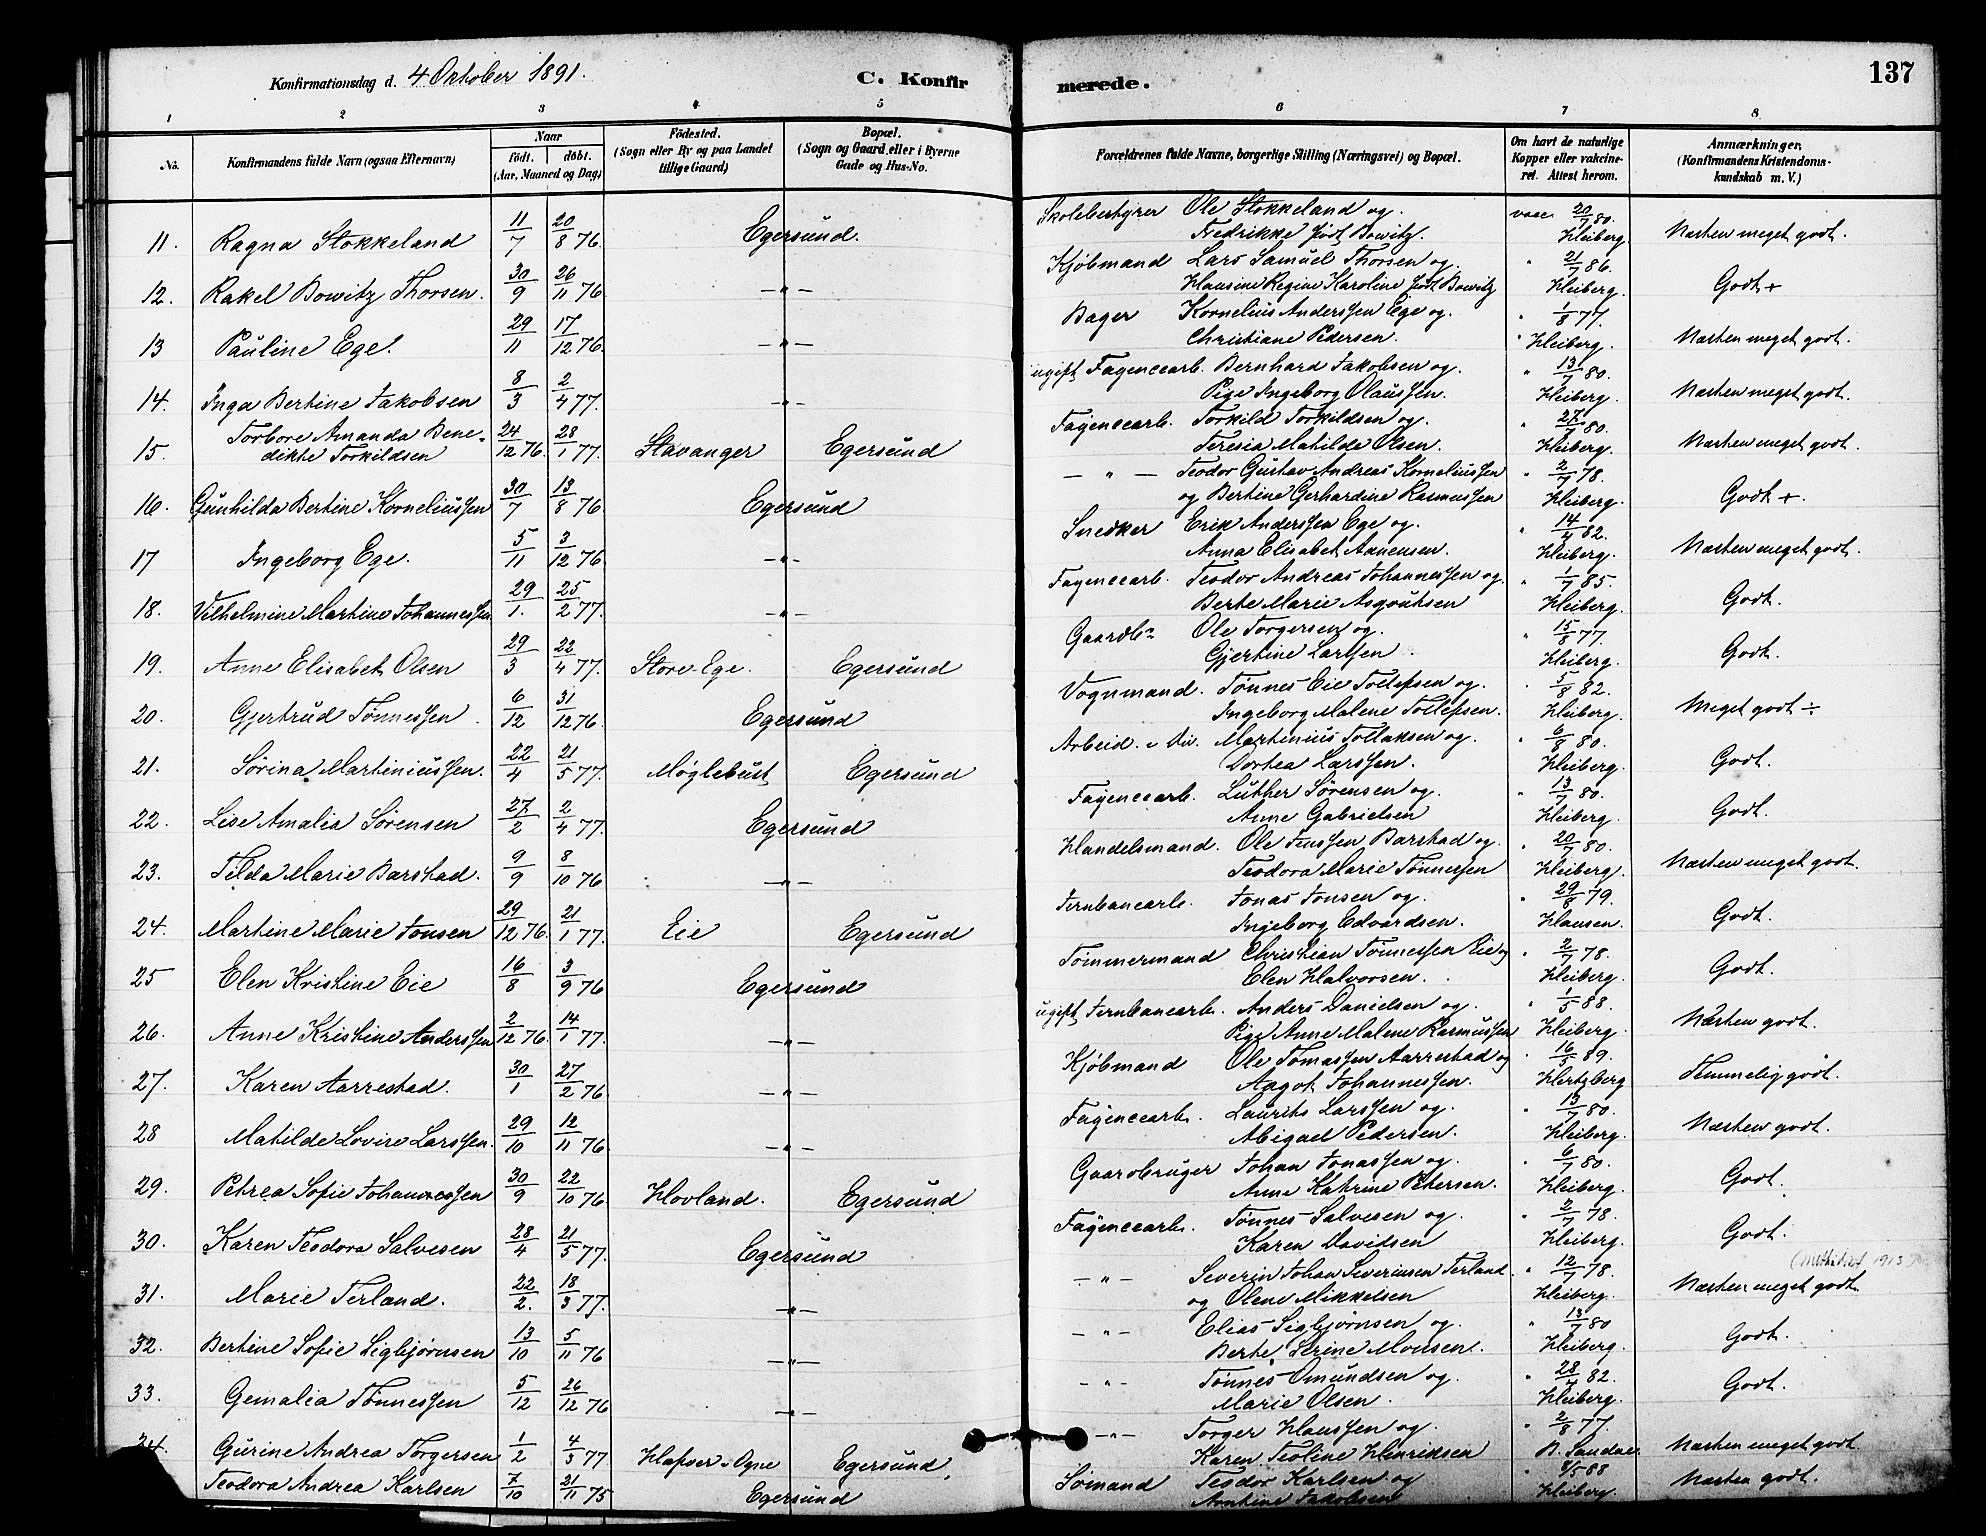 Konfirmationsdag d. 4 Oktober 1891. C. Konfirmerede. 137
1 2 3 4 5 6 7 8
No. Konfirmandens fulde Navn (ogsaa Efternavn) Naar födt. döbt. (Aar, Maaned og Dag) Födested. (Sogn eller By og paa Landet tillige Gaard) Bopæl. (Sogn og Gaard, eller i Byerne Gade og Hus-No. Forældrenes fulde Navne, borgerlige Stilling (Næringsvei) og Bopæl. Om havt de naturlige Kopper eller vakcineret. Attest herom. Anmærkninger. (Konfirmandens Kristendomskundskab m. V.)
11. Ragna Stokkeland 11/7 20/8 76 Egersund. Skolebestyrer Ole Stokkeland og Fredrikke født Bowitz. vacc. 20/7 80. Heiberg. Næsten meget godt.
12. Rakel Bowitz Thorsen. 30/9 26/11 76 —"— Kjöbmand Lars Samuel Thorsen og Hansine Regine Karoline født Bowitz " 21/7 86. Heiberg. Godt +
13 Pauline Ege. 29/11 17/12 76. —"— Bager Kornelius Anderssen Ege og Christiane Pedersen. " 1/8 77. Heiberg. Næsten meget godt.
14. Inga Bertine Jakobsen 8/3 2/4 77. —"— ugift Fayencearb. Bernhard Jakobsen og Pige Ingeborg Olaussen. " 13/7 80. Heiberg. Næsten meget godt.
15. Torbore Amanda Benedikte Torkildsen 24/12 76. 28/1 77. Stavanger Egersund Fayencearb. Torkild Torkildsen og Teresia Matilde Olsen. " 27/7 80. Heiberg. Næsten meget godt.
16. Gunhilda Bertine Korneliussen 30/7 13/8 76 Egersund — " — Teodor Gustav Andreas Korneliussen og Bertine Gerhardine Rasmussen " 2/7 78. Heiberg. Godt +.
17 Ingeborg Ege. 5/11 3/12 76 —"— Snedker Erik Anderssen Ege og Anna Elisabet Aanensen. " 14/4 82. Heiberg. Næsten meget godt.
18. Vilhelmine Martine Johannessen 29/1. 25/2 77. —"— Fayencearb. Teodor Andreas Johannessen og Berte Marie Asgoutsen " 1/7 85. Heiberg. Godt.
19. Anne Elisabet Olsen 29/3 22/4 77. Store-Ege. Egersund Gaardbr. Ole Torgersen og Gjertine Larssen. " 15/8 77. Heiberg. Godt.
20. Gjertrud Tønnessen. 6/12 31/12 76. Egersund Vognmand. Tønnes Eie Tollefsen og Ingeborg Malene Tollefsen. " 5/8 82. Heiberg. Meget godt ÷.
21. Sørina Martiniussen. 22/4 21/5 77. Møglebust Egersund Arbeid. v Div. Martinius Tollaksen og Dortea Larssen. " 6/8 80. Heiberg. Godt.
22. Lise Amalia Sørensen 27/2 2/4 77. Egersund Fayencearb. Luther Sørensen og Anne Gabrielsen " 13/7 80. Heiberg. Godt.
23. Tilda Marie Barstad. 9/9 8/10 76 —"— Handelsmand. Ole Jenssen Barstad og Teodora Marie Tønnessen " 20/7 80. Heiberg. Næsten meget godt.
24. Martine Marie Jonsen 29/12 76. 21/1 77. Eie Egersund Jernbanearb. Jonas Jonsen og Ingeborg Edvardsen. " 29/8 79. Hansen. Godt.
25 Elen Kristine Eie 16/8 3/9 76 Egersund Tømmermand Christian Tønnessen Eie og Elen Halvorsen. " 2/7 78. Heiberg. Godt.
26. Anne Kristine Anderssen 2/12 76. 14/1 77. —"— ugift Jernbanearb. Anders Danielsen og Pige Anne Malene Rasmussen " 1/5 88. Heiberg. Næsten godt.
27. Karen Aarrestad. 30/1 27/2 76. —"— Kjöbmand Ole Tomassen Aarrestad og Aagot Johannessen. " 16/5 89. Hertzberg Temmelig godt.
28 Matilde Lovise Larssen. 29/10 12/11 76 —"— Fayencearb. Laurits Larssen og Abigael Pedersen. " 13/7 80. Heiberg. Næsten godt.
29. Petrea Sofie Johannessen 30/9 22/10 76 Hovland. Egersund Gaardbruger Johan Jonassen og Anne Katrine Petersen. " 6/7 80. Heiberg. Godt.
30. Karen Teodora Salvesen 28/4 21/5 77. Egersund Fayencearb. Tønnes Salvesen og Karen Davidsen " 2/7 78. Heiberg. Godt.
31. Marie Terland. 22/2. 18/3 77. —"— —"— Severin Johan Severinsen Terland og Olene Mikkelsen " 12/7 78. Heiberg. (1913) Næsten meget godt
32. Bertine Sofie Sigbjørnsen 13/10 5/11 76 —"— —"— Elias Sigbjørnsen og Berte Serine Monsen. " 13/7 80 Heiberg. Godt.
33. Gemalia Tønnessen 5/12 26/12 76 —"— —"— Tønnes Omundsen og Marie Olsen. " 28/7 82. Heiberg. Godt.
34. Gurine Andrea Torgersen 1/2 4/3 77 Ogne Egersund. —"— Torger Hanssen og Karen Teoline Henriksen " 2/8 77. Næsten meget godt.
Teodora Andrea Karlsen 7/10 21/11 75 Egersund Sømand Teodor Karlsen og Jakobsen " 8/5 88 Heiberg. Næsten godt.